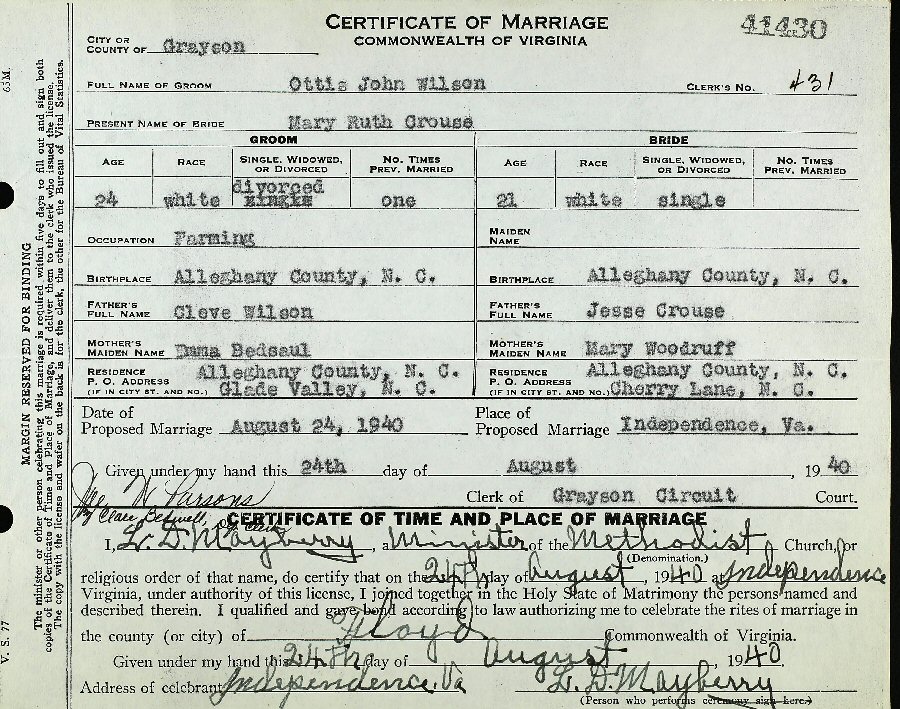 CERTIFICATE OF MARRIAGE
COMMONWEALTH OF VIRGINIA
41430
CITY OR
COUNTY OF Grayson
FULL NAME OF GROOM Ottis John Wilson CLERK'S NO. 431
PRESENT NAME OF BRIDE Mary Ruth Crouse
GROOM BRIDE
AGE RACE SINGLE, WIDOWED, OR DIVORCED NO. TIMES PREV. MARRIED AGE RACE SINGLE, WIDOWED, OR DIVORCED NO. TIMES PREV. MARRIED
divorced
24 white single one 21 white single
OCCUPATION Farming MAIDEN NAME
BIRTHPLACE Alleghany County, N. C. BIRTHPLACE Alleghany County, N. C.
FATHER'S FULL NAME Cleve Wilson FATHER'S FULL NAME Jesse Crouse
MOTHER'S MAIDEN NAME Emma Bedsaul MOTHER'S MAIDEN NAME Mary Woodruff
RESIDENCE Alleghany County, N. C. RESIDENCE Alleghany County, N. C.
P. O. ADDRESS Glade Valley, N. C. P. O. ADDRESS Cherry Lane, N. C.
(IF IN CITY ST. AND NO.) (IF IN CITY ST. AND NO.)
Date of Proposed Marriage August 24, 1940 Place of Proposed Marriage Independence, Va.
Given under my hand this 24th day of August, 1940
Parsons Clerk of Grayson Circuit Court.
By Clara Bedwell,
CERTIFICATE OF TIME AND PLACE OF MARRIAGE
I, L. D. Mayberry, a Minister of the Methodist Church, or
(Denomination.)
religious order of that name, do certify that on the 24th day of August, 1940 at Independence
Virginia, under authority of this license, I joined together in the Holy State of Matrimony the persons named and
described therein. I qualified and gave bond according to law authorizing me to celebrate the rites of marriage in
the county (or city) of Floyd Commonwealth of Virginia.
Given under my hand this 24th day of August, 1940.
Address of celebrant Independence, Va L. D. Mayberry
(Person who performs ceremony sign here.)
65M.
MARGIN RESERVED FOR BINDING
The minister or other person celebrating this marriage is required within five days to fill out and sign both
copies of the Certificate of Time and Place of Marriage, and deliver them to the clerk who issued the license.
The copy with the license and wafer on the back is for the clerk, the other for the Bureau of Vital Statistics.
V. S. 77